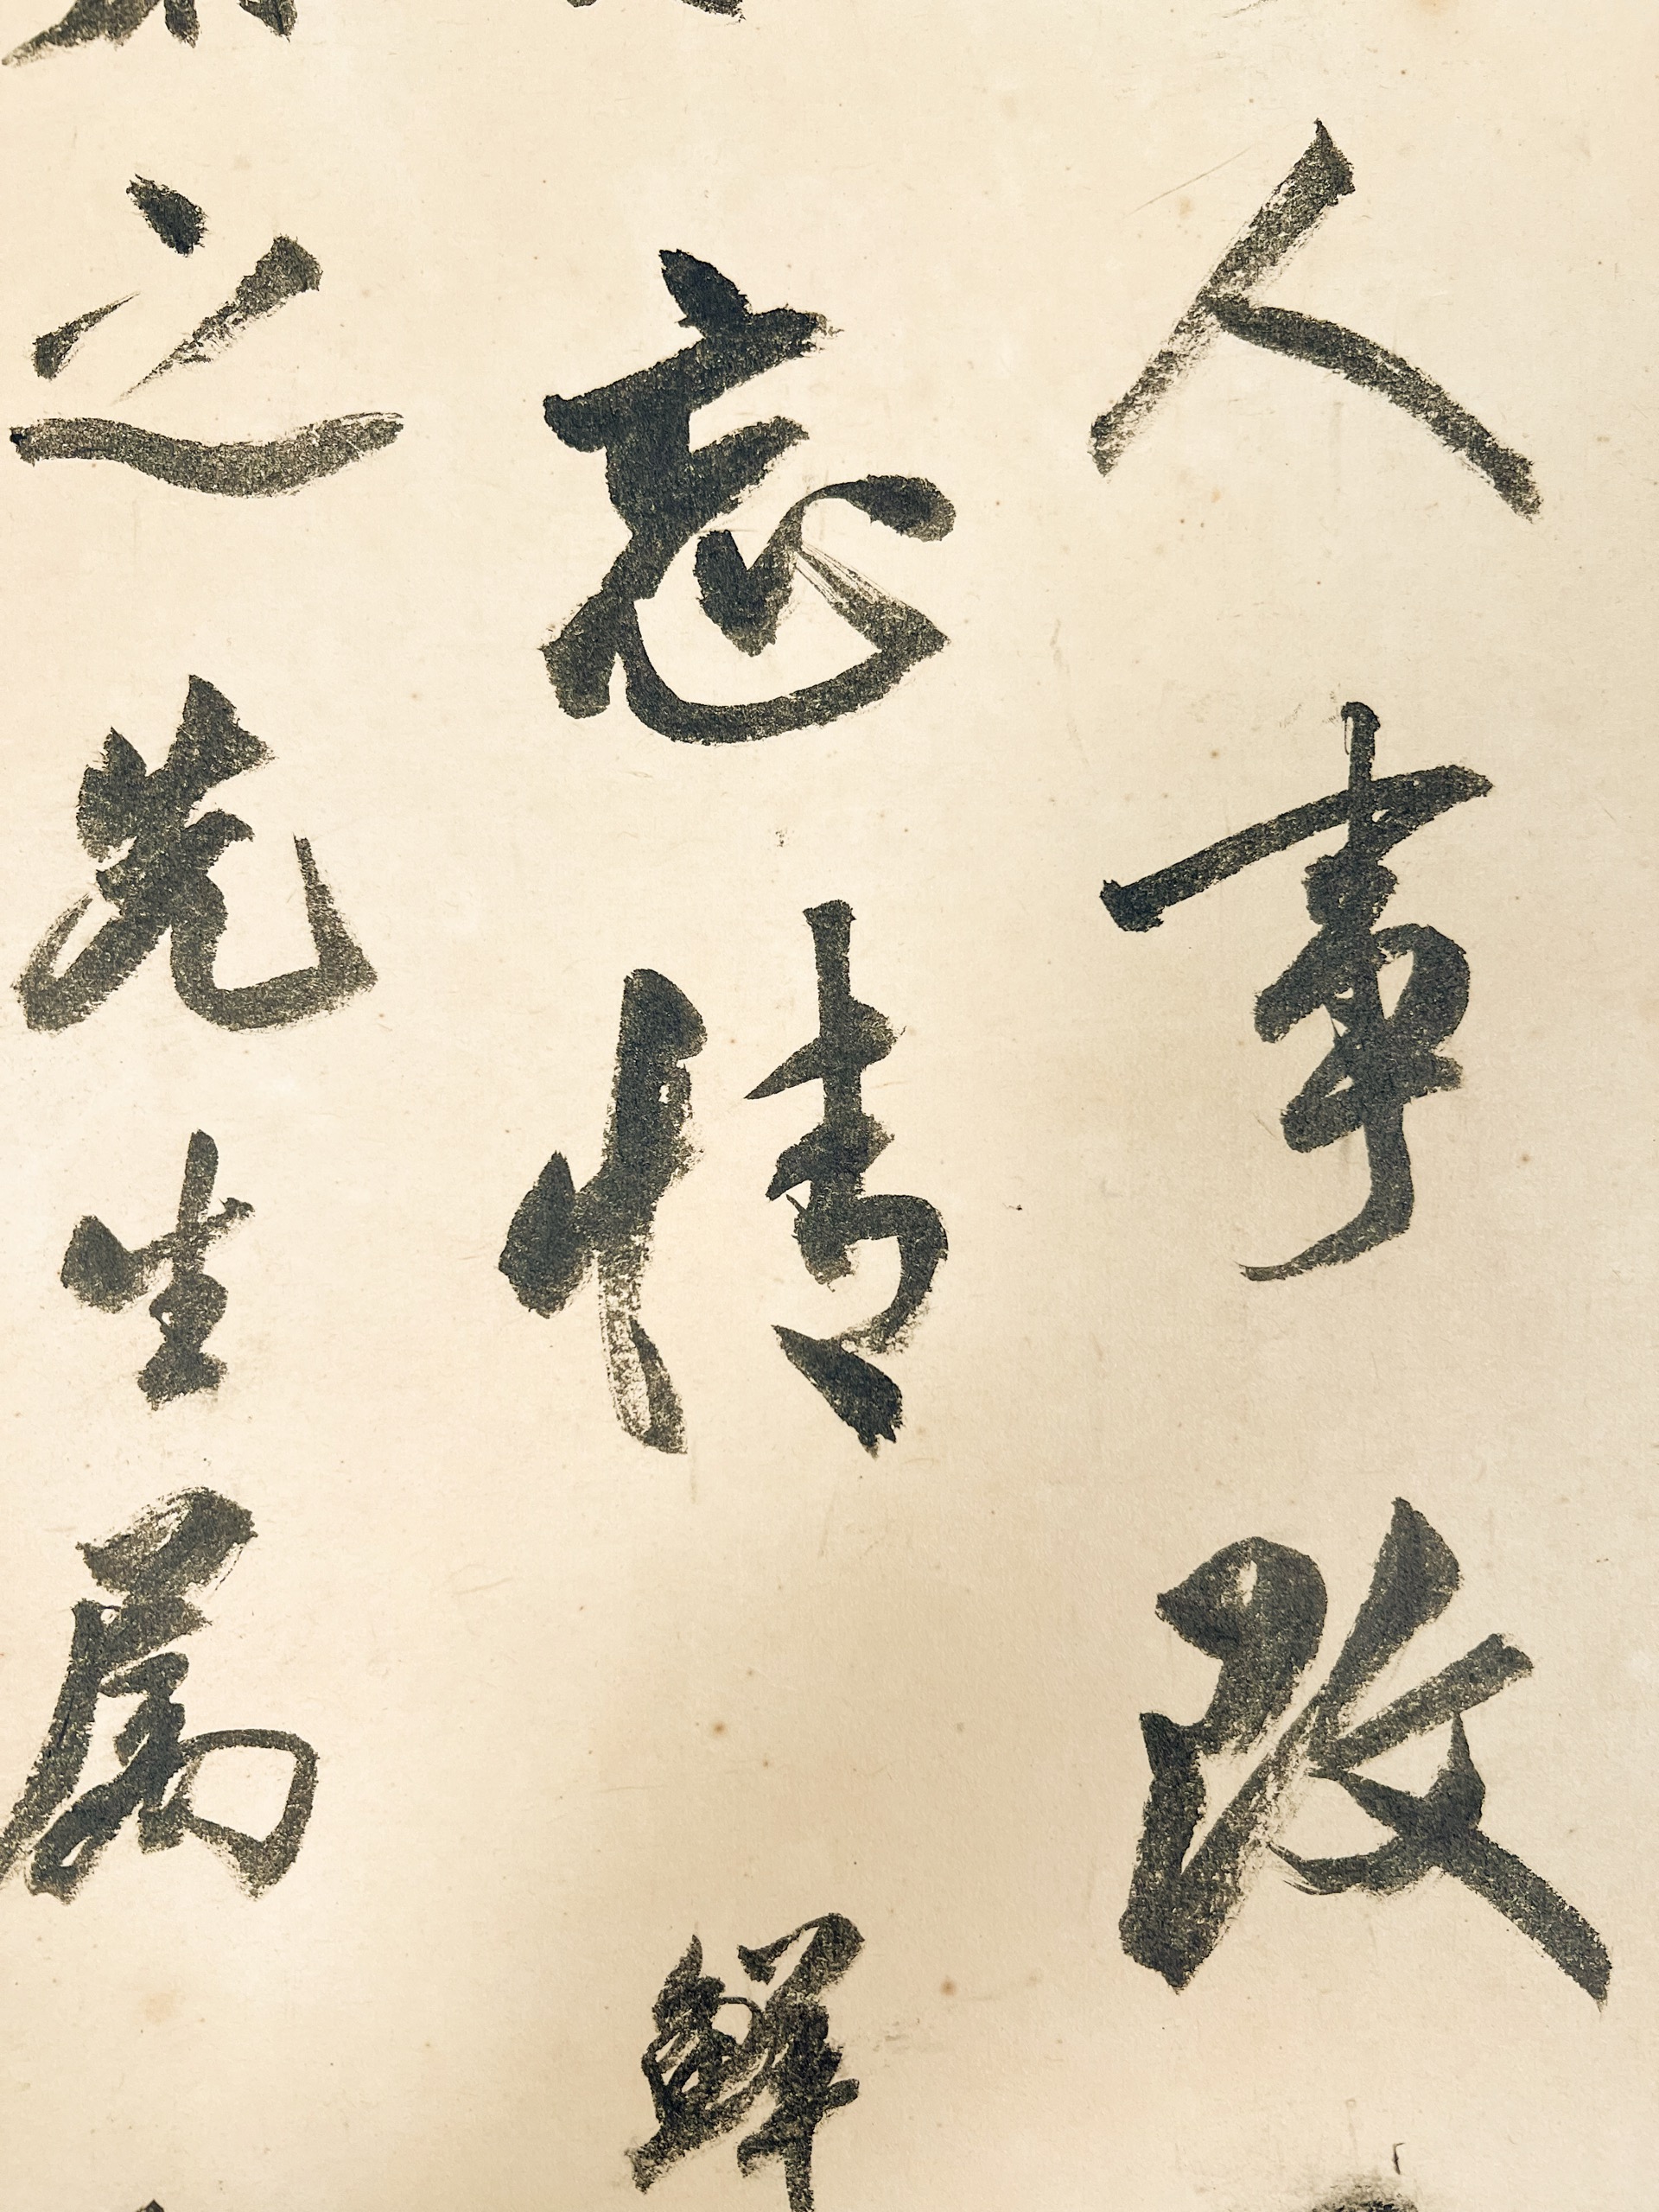 人事改
忘情鲜
之先生属